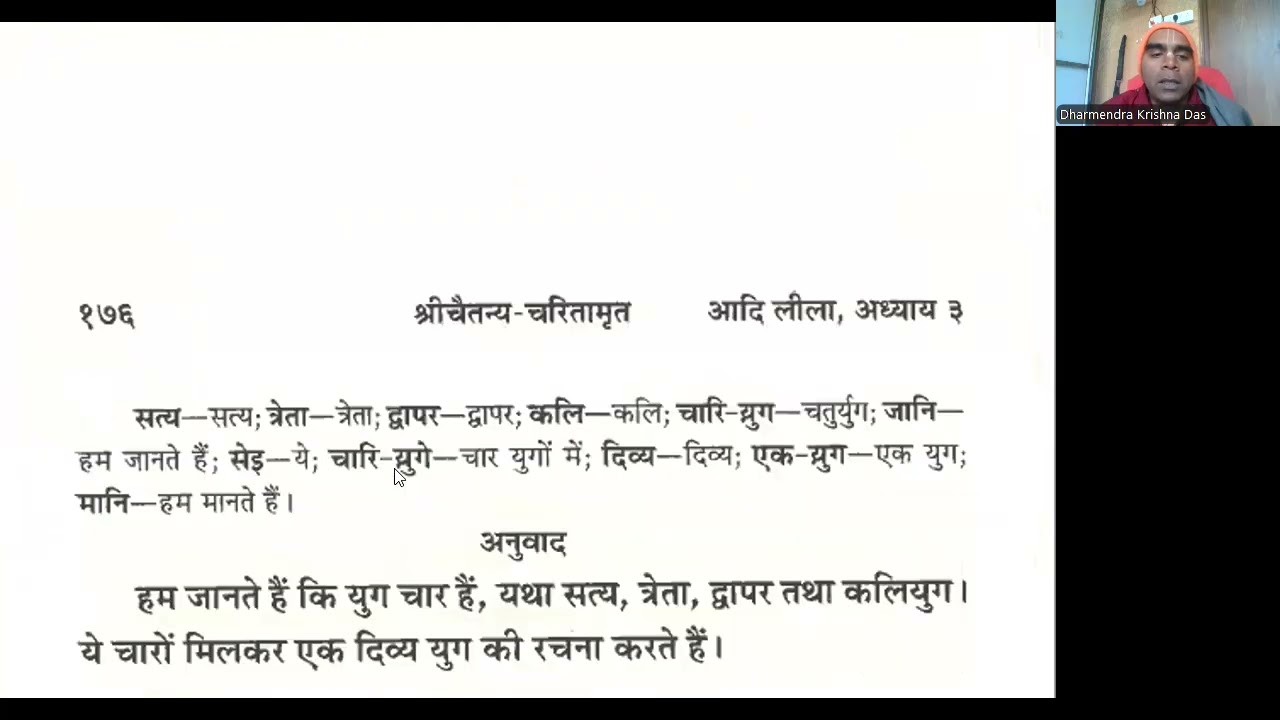 Dharmendra Krishna Das
१७६ श्रीचैतन्य-चरितामृत आदि लीला, अध्याय ३
सत्य—सत्य; त्रेता—त्रेता; द्वापर—द्वापर; कलि—कलि; चारि-य़ुग—चतुर्युग; जानि—
हम जानते हैं; सेइ—ये; चारि-य़ुगे—चार युगों में; दिव्य—दिव्य; एक-य़ुग—एक युग;
मानि—हम मानते हैं।
अनुवाद
हम जानते हैं कि युग चार हैं, यथा सत्य, त्रेता, द्वापर तथा कलियुग।
ये चारों मिलकर एक दिव्य युग की रचना करते हैं।